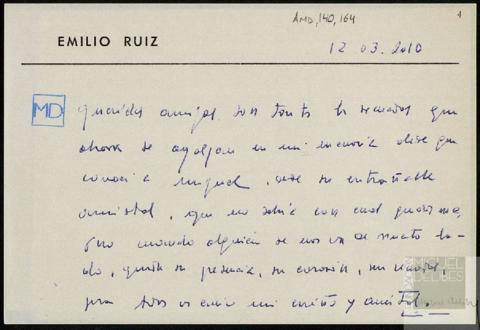 AMD, 140, 164
4
EMILIO RUIZ
12 03. 2010
MD
Queridos amigos, son tantos los recuerdos que
ahora se agolpan en mi memoria desde que
conocí a Miguel, desde su entrañable
amistad, que no sabría con cual quedarme,
cuando alguien se nos va de nuestro la-
do, queda su presencia, su corazón, su
para todos os envío mi cariño y amistad.
MIGUEL
DELIBES